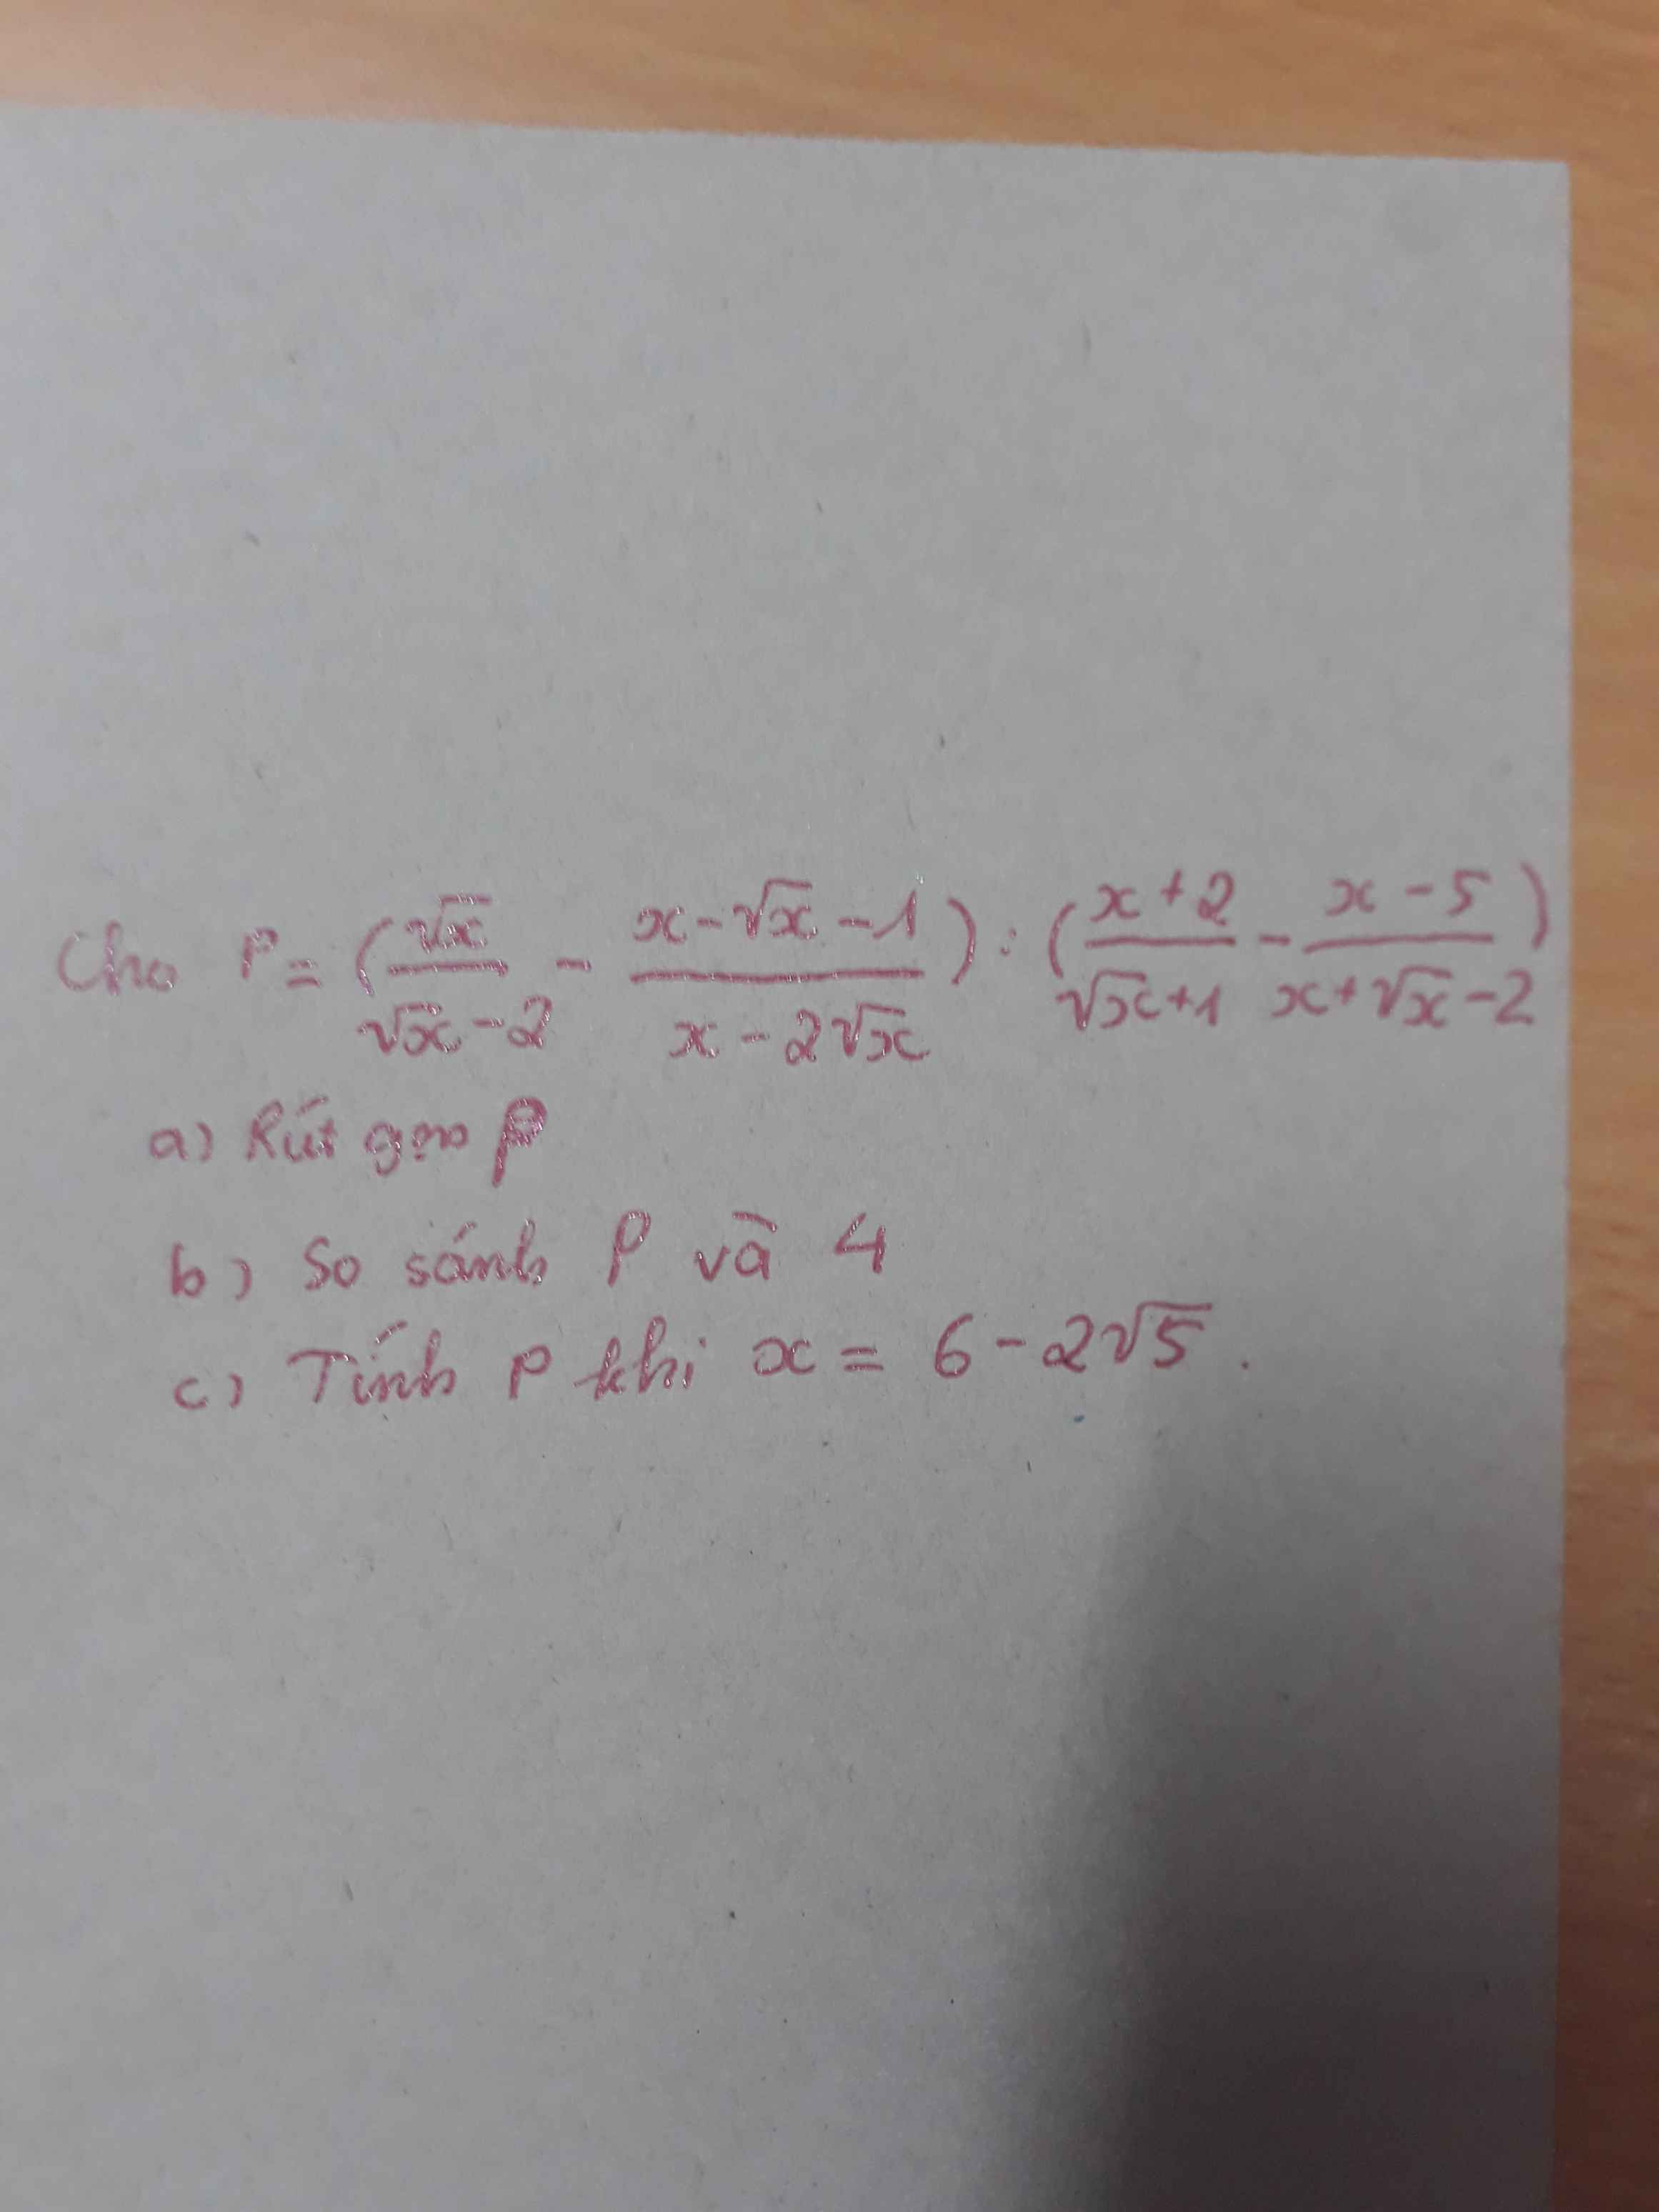 Cho P = (√x/(√x-2) - (x-√x-1)/(x-2√x)) : ((x+2)/(√x+1) - (x-5)/(x+√x-2))
a) Rút gọn P
b) So sánh P và 4
c) Tính P khi x = 6-2√5.